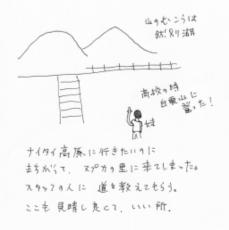 山のむこうは
然別湖
高校の時
白雲山に
登った!
妹
ナイタイ高原に行きたいのに
まちがって、ヌプカの里に来てしまった。
スタッフの人に 道を教えてもらう。
ここも 見晴し良くて、いい所.